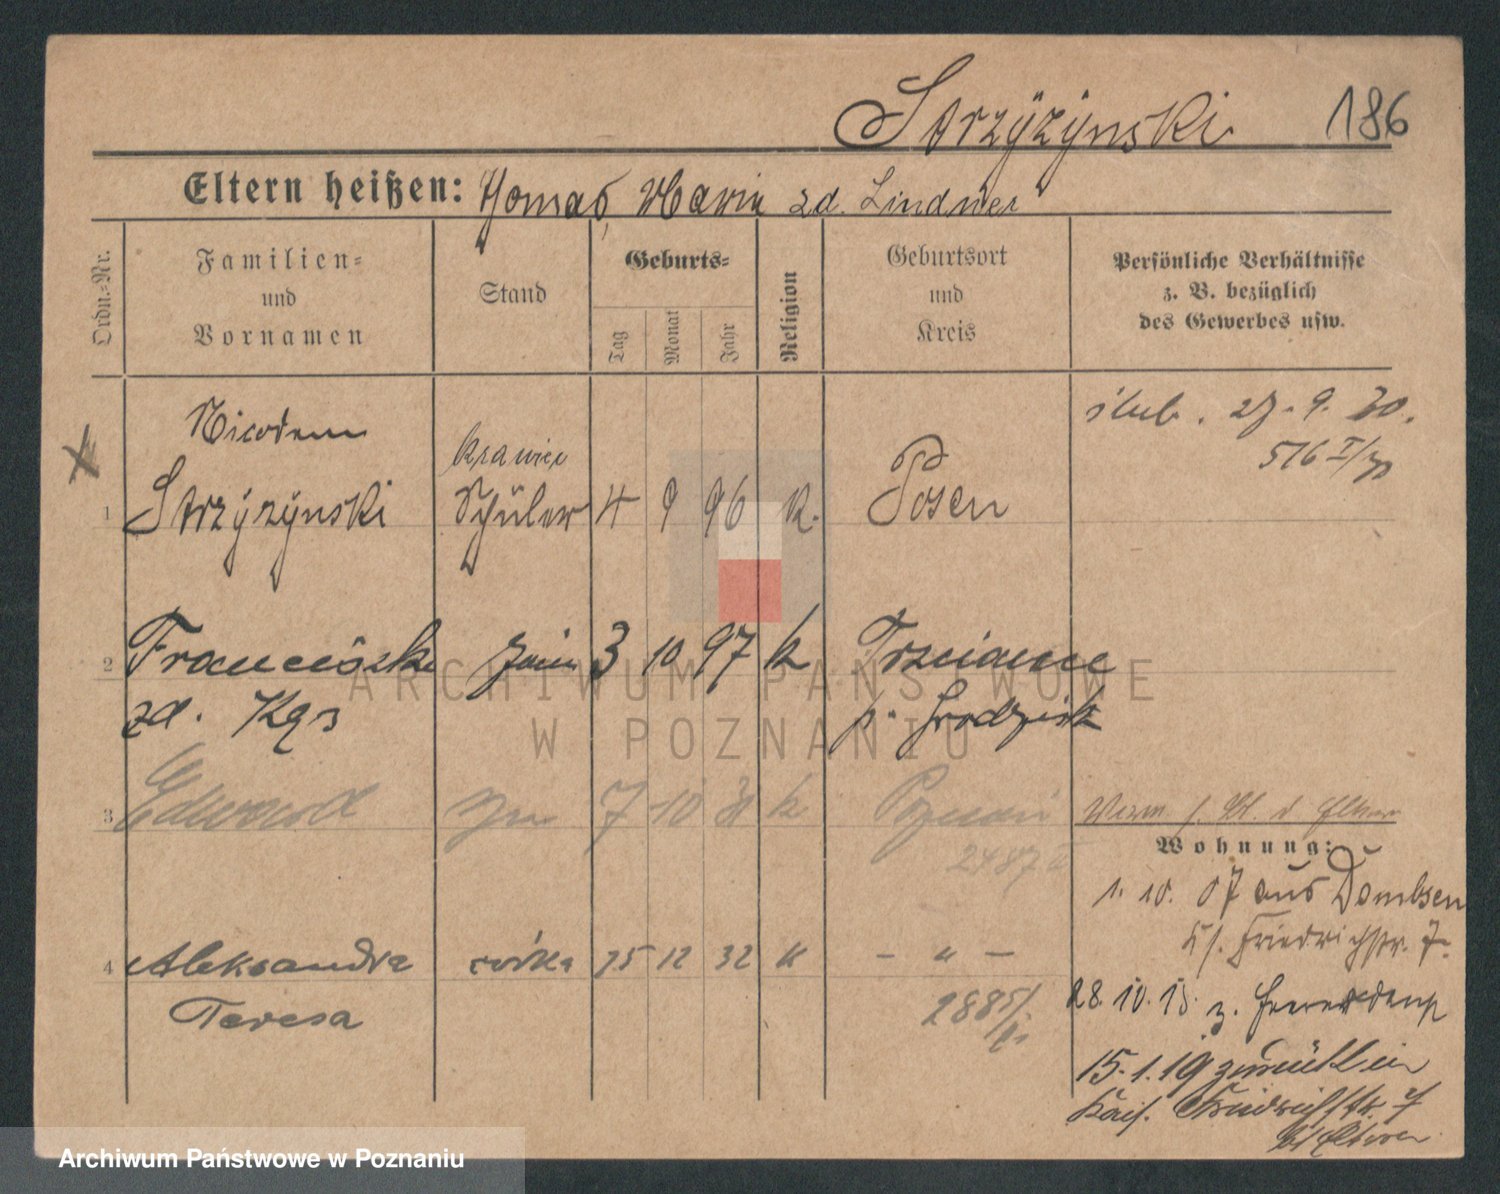 Strzÿżÿnski 186
Eltern heißen: Thomas, Maria zd. Lindner
Ordn.=Nr.
Familien=
und
Vornamen
Stand
Geburts=
Tag
Monat
Jahr
Religion
Geburtsort
und
Kreis
Persönliche Verhältnisse
z. B. bezüglich
des Gewerbes usw.
Nicodem krawiec ślub. 27. 9. 30.
516 I/30
1 Strzÿżÿnski Schüler 4 9 96 k. Posen
2 Franciszka żona 3 10 97 k Trzciance
zd. p. Grodzisk
3 Edward syn 7 10 31 k Poznań
2487
Wohnung:
1. 10. 07 aus Dombsen
Ks. Friedrichstr. 7.
4 Aleksandra córka 15 12 32 k - " -
Teresa 2885/
28. 10. 15 z. Heeresdienst
15. 1. 19 zurück in
Kais. Friedrichstr. 7
bei Eltern
ARCHIWUM PAŃSTWOWE
W POZNANIU
Archiwum Państwowe w Poznaniu